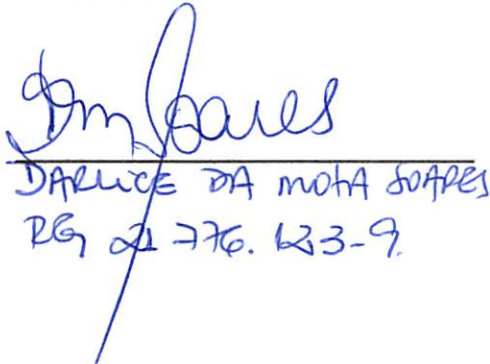 DM Soares
DARLICE DA MOTA SOARES
RG 21 776.123-9